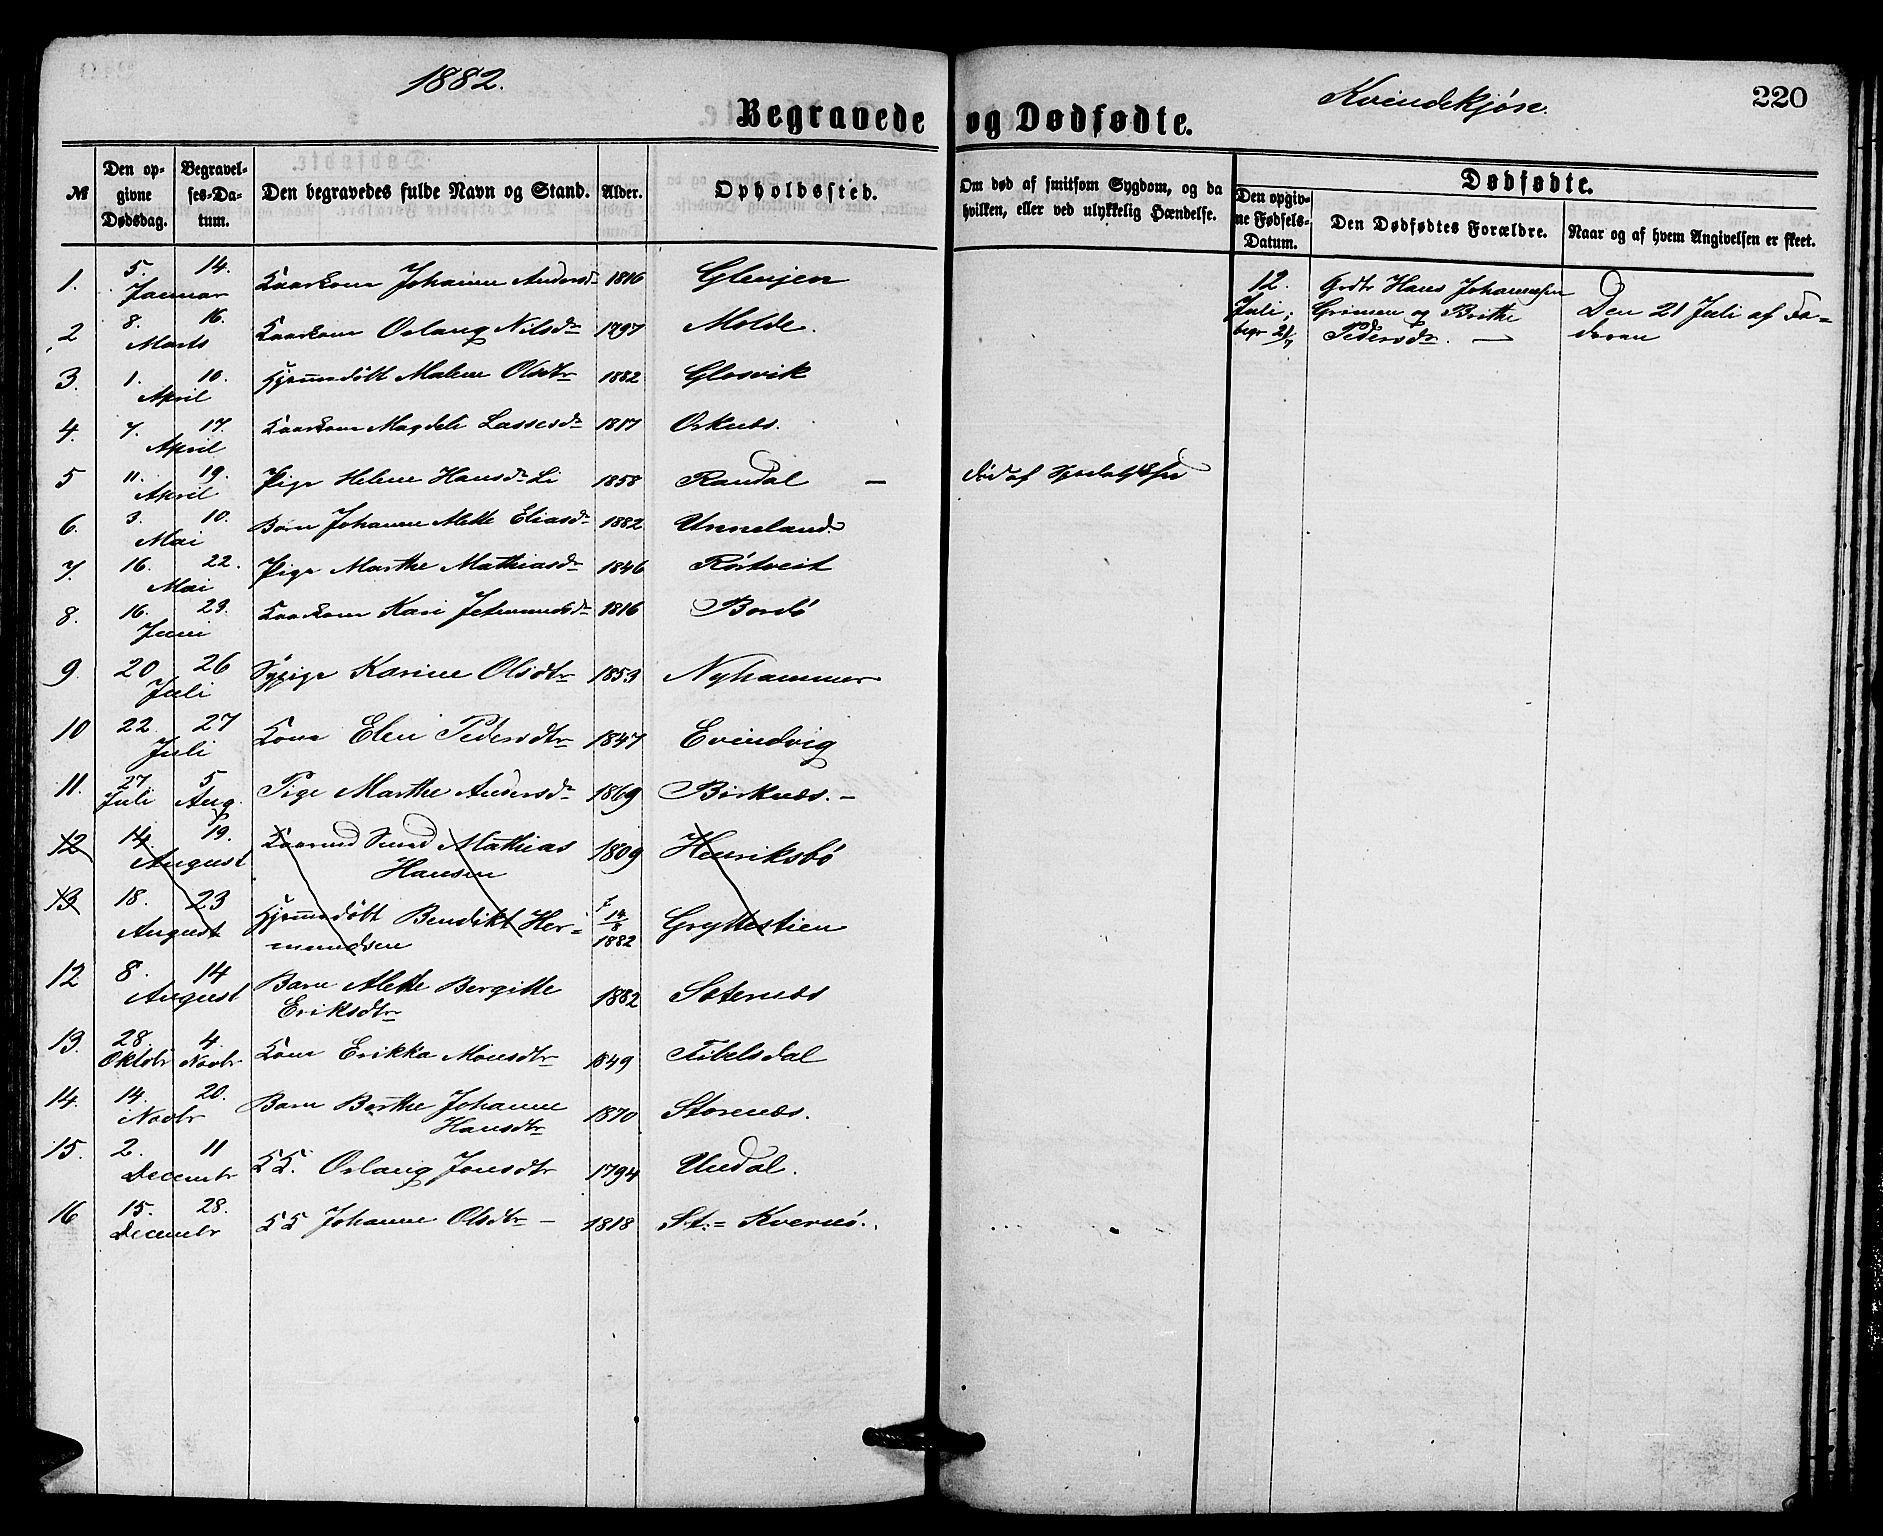 1882.
Kvindekjøn.
220
Begravede og Dødfødte.
№
Den opgivne Dødsdag.
Begravelses-Datum.
Den begravedes fulde Navn og Stand.
Alder.
Opholdssted.
Om død af smitsom Sygdom, og da hvilken, eller ved ulykkelig Hændelse.
Dødfødte.
Den opgivne Fødsels-Datum.
Den Dødfødtes Forældre.
Naar og af hvem Angivelsen er skeet.
1. 5. 14. Januar Kaarkone Johanne Andersdr 1816
2 8. 16. Marts Kaarkone Oslaug Nilsdr 1797 Molde.
3. 1. 10. April Hjemmedøbt Malene Olsdtr 1882 Glosvik
4. 7. 17. April Kaarkone Magdeli Lassesdr 1817 Oknes.
5 11. 19. April Pige Helene Hansdr Li 1858 Randal – død af Spedalskhed
6. 3. 10. Mai Barn Johanne Alette Eliasdr 1882 Unneland
7. 16. 22. Mai Pige Marthe Mathiasdr 1846 Røitveit
8. 16. 23. Juni Kaarkone Kari 1816 Bordø
9. 20 26 Juli Sypige Karine Olsdtr 1853 Nyhammer
10 22. 27 Juli Kone Eleri Pedersdtr 1847 Evindvig
11. 27 Juli 5 Aug. Pige Marthe Andersdr 1869 Birknes. –
12 14. 19. August Mathias
Hansen 1809 Henriksbø
13 18. 23 August Hjemmedøbt Benedikt Her-
mundsen f. 14/8 1882 Gryttestien
12 8. 14 August Barn Alette Bergitte
Eriksdtr 1882 Sæternes
13. 28. Oktobr 4. Novbr Kone Erikka Monsdtr 1849
14. 14. 20. Novbr Barn Berthe Johanne
Hansdtr 1870 Storenes.
15. 2. 11 Decembr KK. Oslaug Jonsdtr 1794 Undal.
16 15. 28. Decembr KK Johanne Olsdtr – 1818 St:= Kvernø.
12. Juli, begr 21/7
Grdbr Hans Johannessen
Grinsen og Brithe
Pedersdr. –
Den 21 Juli af Fa-
deren